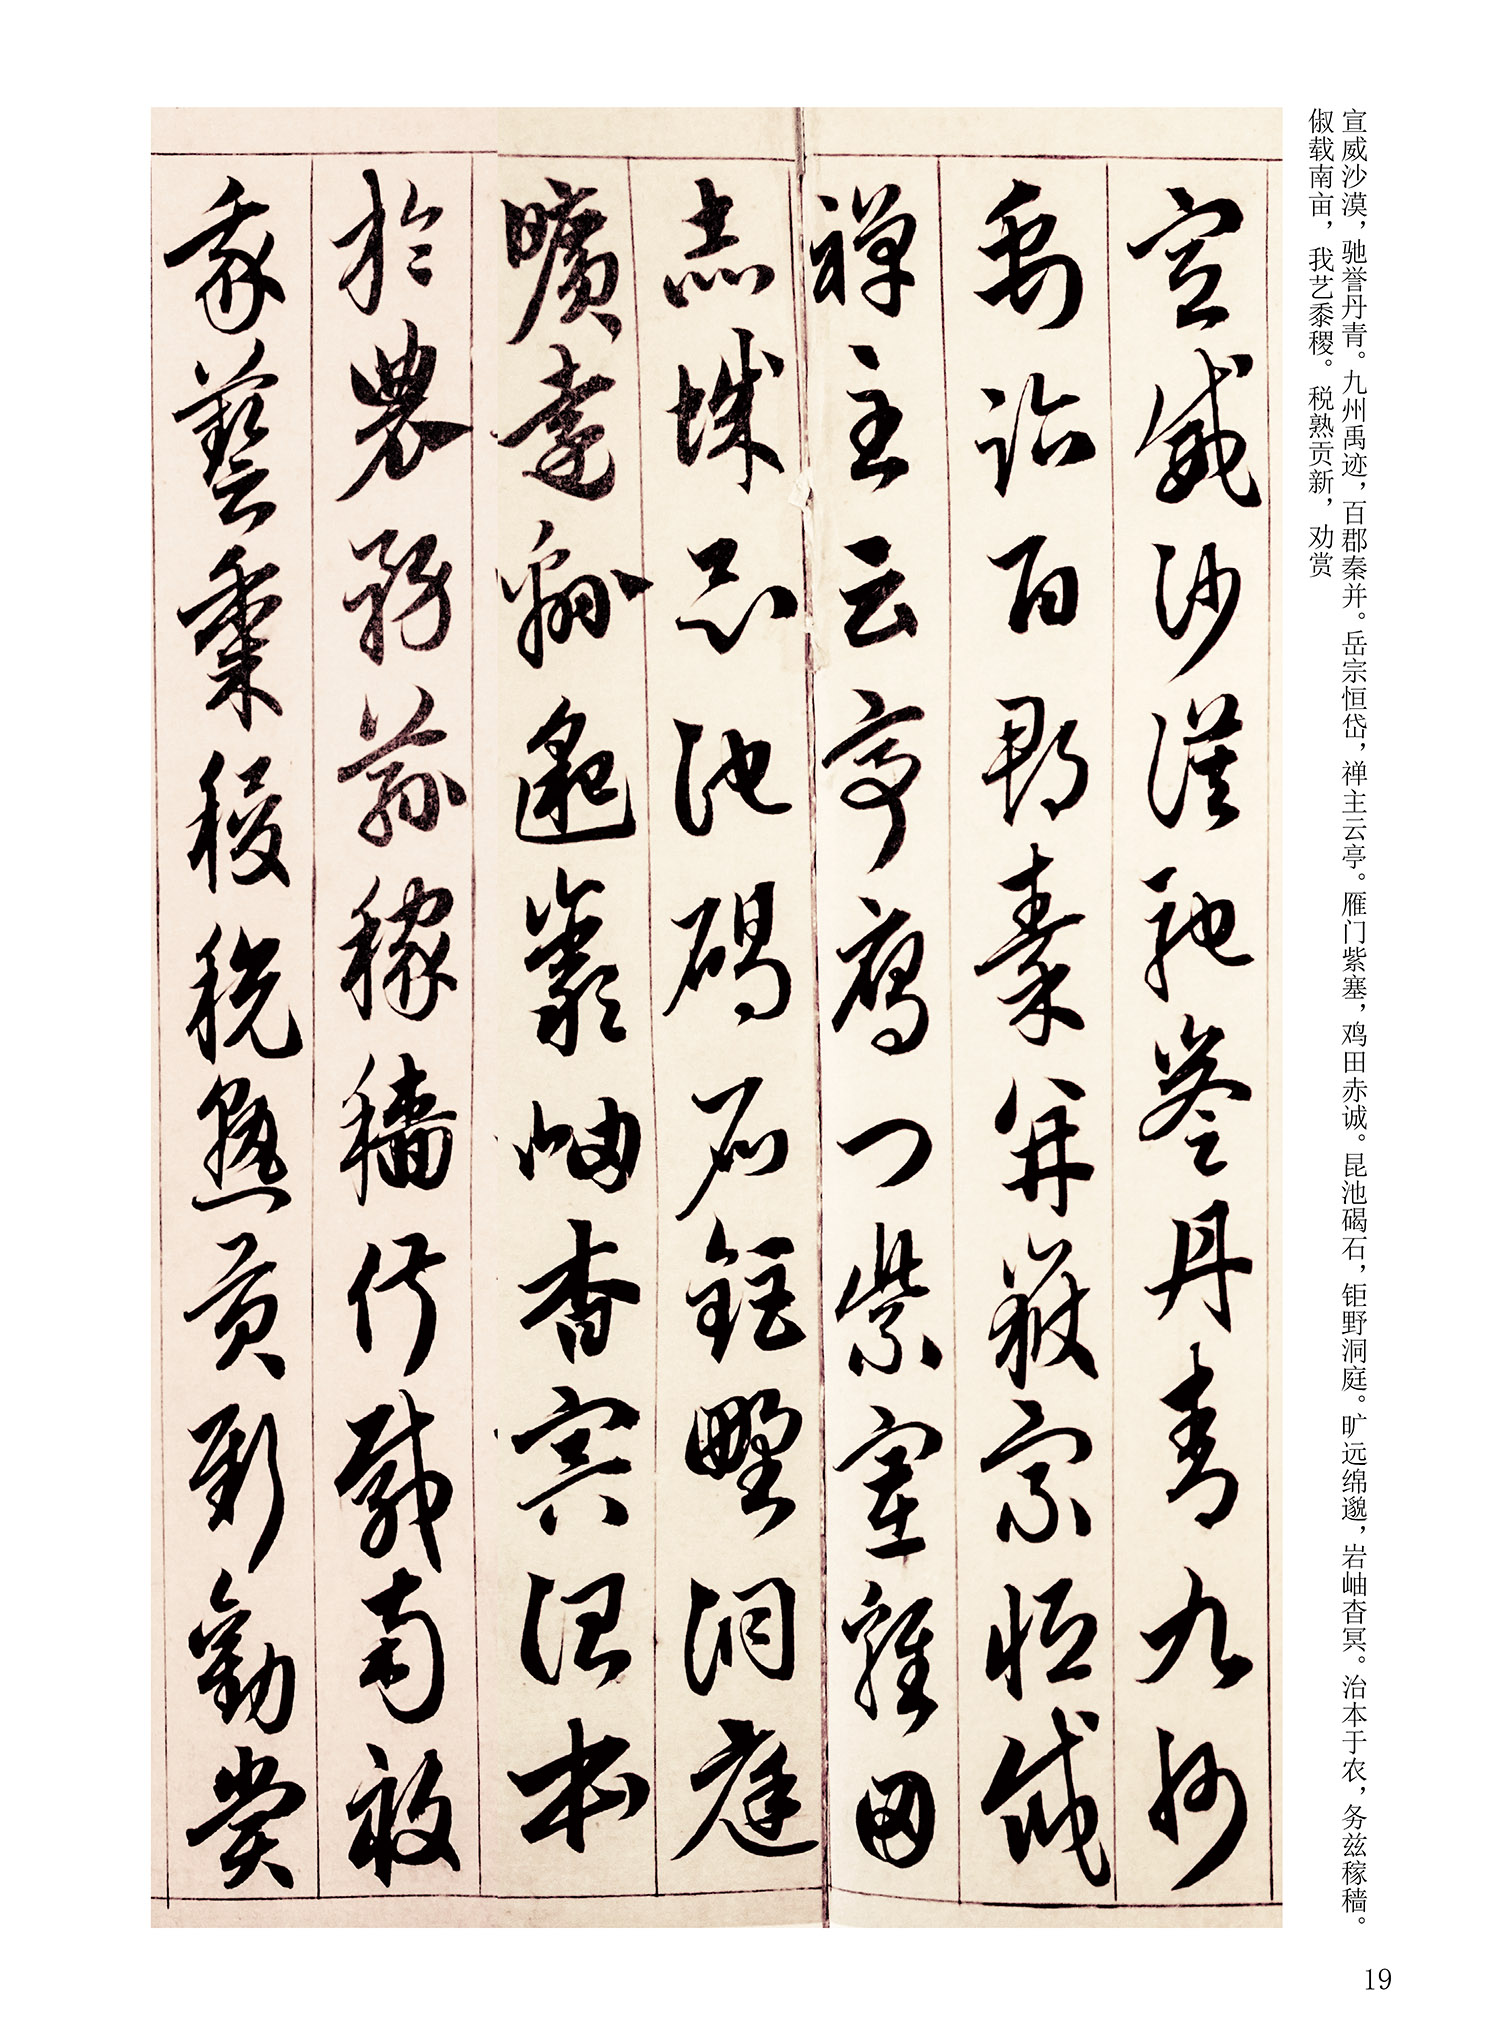 宣威沙漠，驰誉丹青。九州禹迹，百郡秦并。岳宗恒岱，禅主云亭。雁门紫塞，鸡田赤诚。昆池碣石，钜野洞庭。旷远绵邈，岩岫杳冥。治本于农，务兹稼穑。
俶载南亩，我艺黍稷。税熟贡新，劝赏
宣威沙漠馳譽丹青九州
禹跡百郡秦并嶽宗恒岱
禪主云亭鴈門紫塞雞田
赤城昆池碣石鉅野洞庭
曠遠緜邈巖岫杳冥治本
於農務茲稼穡俶載南畝
我藝黍稷稅熟貢新勸賞
19